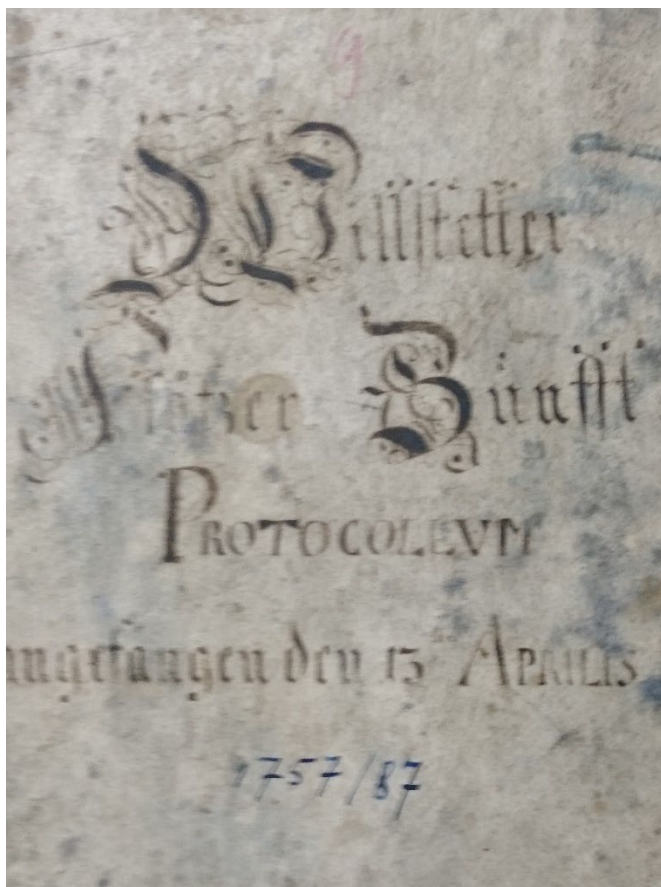 9
Willstetter
Flötzer Zünfft
PROTOCOLLVM
angefangen den 13ten APRILIS
1757/87